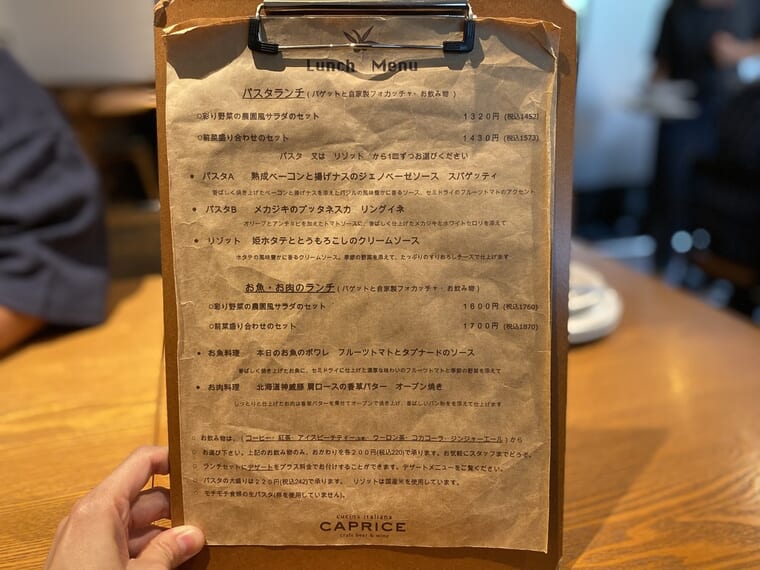 Lunch Menu
パスタランチ (バゲットと自家製フォカッチャ・お飲み物 )
○彩り野菜の農園風サラダのセット 1320円 (税込1452)
○前菜盛り合わせのセット 1430円 (税込1573)
パスタ 又は リゾット から1皿ずつお選びください
• パスタA 熟成ベーコンと揚げナスのジェノベーゼソース スパゲッティ
香ばしく焼き上げたベーコンと揚げナスを添えたバジルの風味豊かに香るソース、セミドライのフルーツトマトのアクセント
• パスタB メカジキのプッタネスカ リングイネ
オリーブとアンチョビを加えたトマトソースに、香ばしく仕上げたメカジキとホワイトセロリを添えて
• リゾット 姫ホタテととうもろこしのクリームソース
ホタテの風味豊かに香るクリームソース。季節の野菜を添えて、たっぷりのすりおろしチーズで仕上げます
お魚・お肉のランチ (バゲットと自家製フォカッチャ・お飲み物)
○彩り野菜の農園風サラダのセット 1600円 (税込1760)
○前菜盛り合わせのセット 1700円 (税込1870)
• お魚料理 本日のお魚のポワレ フルーツトマトとタプナードのソース
香ばしく焼き上げたお魚に、セミドライに仕上げた濃厚な味わいのフルーツトマトと季節の野菜を添えて
• お肉料理 北海道神威豚 肩ロースの香草バター オーブン焼き
しっとりと仕上げたお肉は香草バターを乗せてオーブンで焼き上げ、香ばしいパン粉を添えて仕上げます
○ お飲み物は、(コーヒー・紅茶・アイスピーチティー・ウーロン茶・コカコーラ・ジンジャーエール) から
○ お選び下さい。上記のお飲み物のみ、おかわりを各200円(税込220)で承ります。お気軽にスタッフまでどうぞ。
○ ランチセットにデザートをプラス料金でお付けすることができます。デザートメニューをご覧ください。
○ パスタの大盛りは220円(税込242)で承ります。 リゾットは国産米を使用しています。
○ モチモチ食感の生パスタ(卵を使用していません)。
cucina italiana
CAPRICE
craft beer & wine